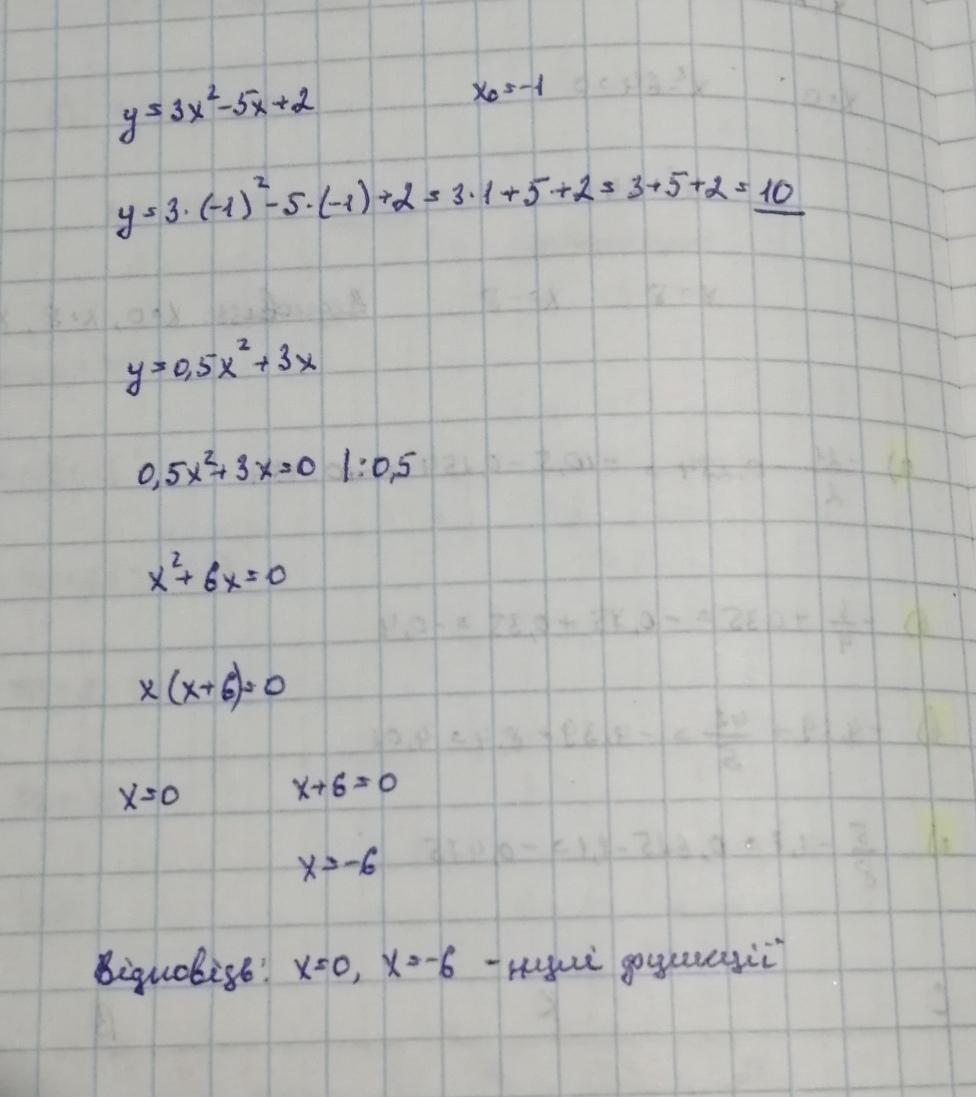 y = 3x² - 5x + 2 x₀ = -1
y = 3 · (-1)² - 5 · (-1) + 2 = 3 · 1 + 5 + 2 = 3 + 5 + 2 = 10
y = 0,5x² + 3x
0,5x² + 3x = 0 | : 0,5
x² + 6x = 0
x (x + 6) = 0
x = 0 x + 6 = 0
x = -6
Відповідь: x = 0, x = -6 - нулі функції